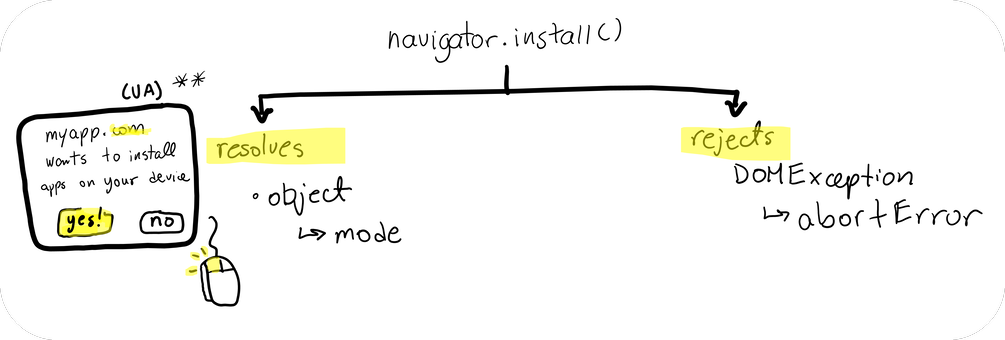 navigator.install()
(UA) **
myapp.com
wants to install
apps on your device
yes!
no
resolves
• object
↳ mode
rejects
DOMException
↳ abortError